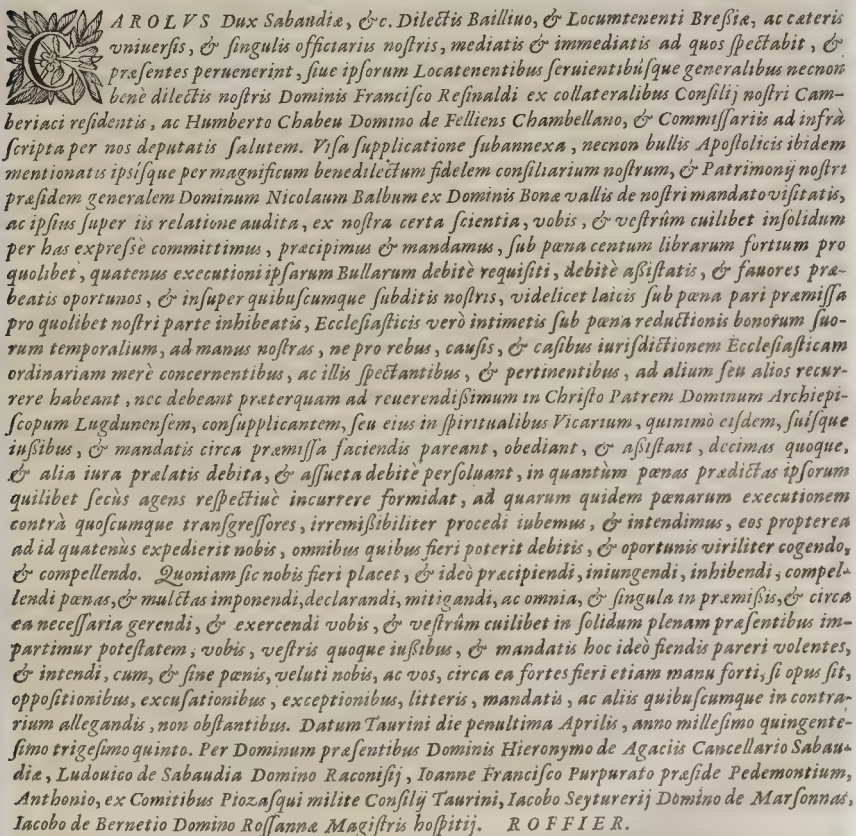 CAROLVS Dux Sabaudiæ, &c. Dilectis Bailliuo, & Locumtenenti Breßiæ, ac cæteris
vniuersis, & singulis officiariis nostris, mediatis & immediatis ad quos spectabit, &
præsentes peruenerint, siue ipsorum Locatenentibus seruientibúsque generalibus necnon
benè dilectis nostris Dominis Francisco Resinaldi ex collateralibus Consilij nostri Cam-
beriaci residentis, ac Humberto Chabeu Domino de Felliens Chambellano, & Commissariis ad infrà
scripta per nos deputatis salutem. Visa supplicatione subannexa, necnon bullis Apostolicis ibidem
mentionatis ipsisque per magnificum benedilectum fidelem consiliarium nostrum, & Patrimonij nostri
præsidem generalem Dominum Nicolaum Balbum ex Dominis Bonæ vallis de nostri mandato visitatis,
ac ipsius super iis relatione audita, ex nostra certa scientia, vobis, & vestrûm cuilibet insolidum
per has expressè committimus, præcipimus & mandamus, sub pœna centum librarum fortium pro
quolibet, quatenus executioni ipsarum Bullarum debitè requisiti, debitè aßistatis, & fauores præ-
beatis oportunos, & insuper quibuscumque subditis nostris, videlicet laicis sub pœna pari præmissa
pro quolibet nostri parte inhibeatis, Ecclesiasticis verò intimetis sub pœna reductionis bonorum suo-
rum temporalium, ad manus nostras, ne pro rebus, causis, & casibus iurisdictionem Ecclesiasticam
ordinariam merè concernentibus, ac illis spectantibus, & pertinentibus, ad alium seu alios recur-
rere habeant, nec debeant præterquam ad reuerendißimum in Christo Patrem Dominum Archiepi-
scopum Lugdunensem, consupplicantem, seu eius in spiritualibus Vicarium, quinimò eisdem, suísque
iußibus, & mandatis circa præmissa faciendis pareant, obediant, & aßistant, decimas quoque,
& alia iura prælatis debita, & assueta debitè persoluant, in quantùm pœnas prædictas ipsorum
quilibet secùs agens respectiuè incurrere formidat, ad quarum quidem pœnarum executionem
contrà quoscumque transgressores, irremißibiliter procedi iubemus, & intendimus, eos propterea
ad id quatenùs expedierit nobis, omnibus quibus fieri poterit debitis, & oportunis viriliter cogendo,
& compellendo. Quoniam sic nobis fieri placet, & ideò præcipiendi, iniungendi, inhibendi, compel-
lendi pœnas, & mulctas imponendi, declarandi, mitigandi, ac omnia, & singula in præmißis, & circa
ea necessaria gerendi, & exercendi vobis, & vestrûm cuilibet in solidum plenam præsentibus im-
partimur potestatem, vobis, vestris quoque iußibus, & mandatis hoc ideò fiendis pareri volentes,
& intendi, cum, & sine pœnis, veluti nobis, ac vos, circa ea fortes fieri etiam manu forti, si opus sit,
oppositionibus, excusationibus, exceptionibus, litteris, mandatis, ac aliis quibuscumque in contra-
rium allegandis, non obstantibus. Datum Taurini die penultima Aprilis, anno millesimo quingente-
simo trigesimo quinto. Per Dominum præsentibus Dominis Hieronymo de Agaciis Cancellario Sabau-
diæ, Ludouico de Sabaudia Domino Raconisij, Ioanne Francisco Purpurato præside Pedemontium,
Anthonio, ex Comitibus Piozasqui milite Consilij Taurini, Iacobo Seyturerij Domino de Marsonnas,
Iacobo de Bernetio Domino Rossannæ Magistris hospitij. ROFFIER.